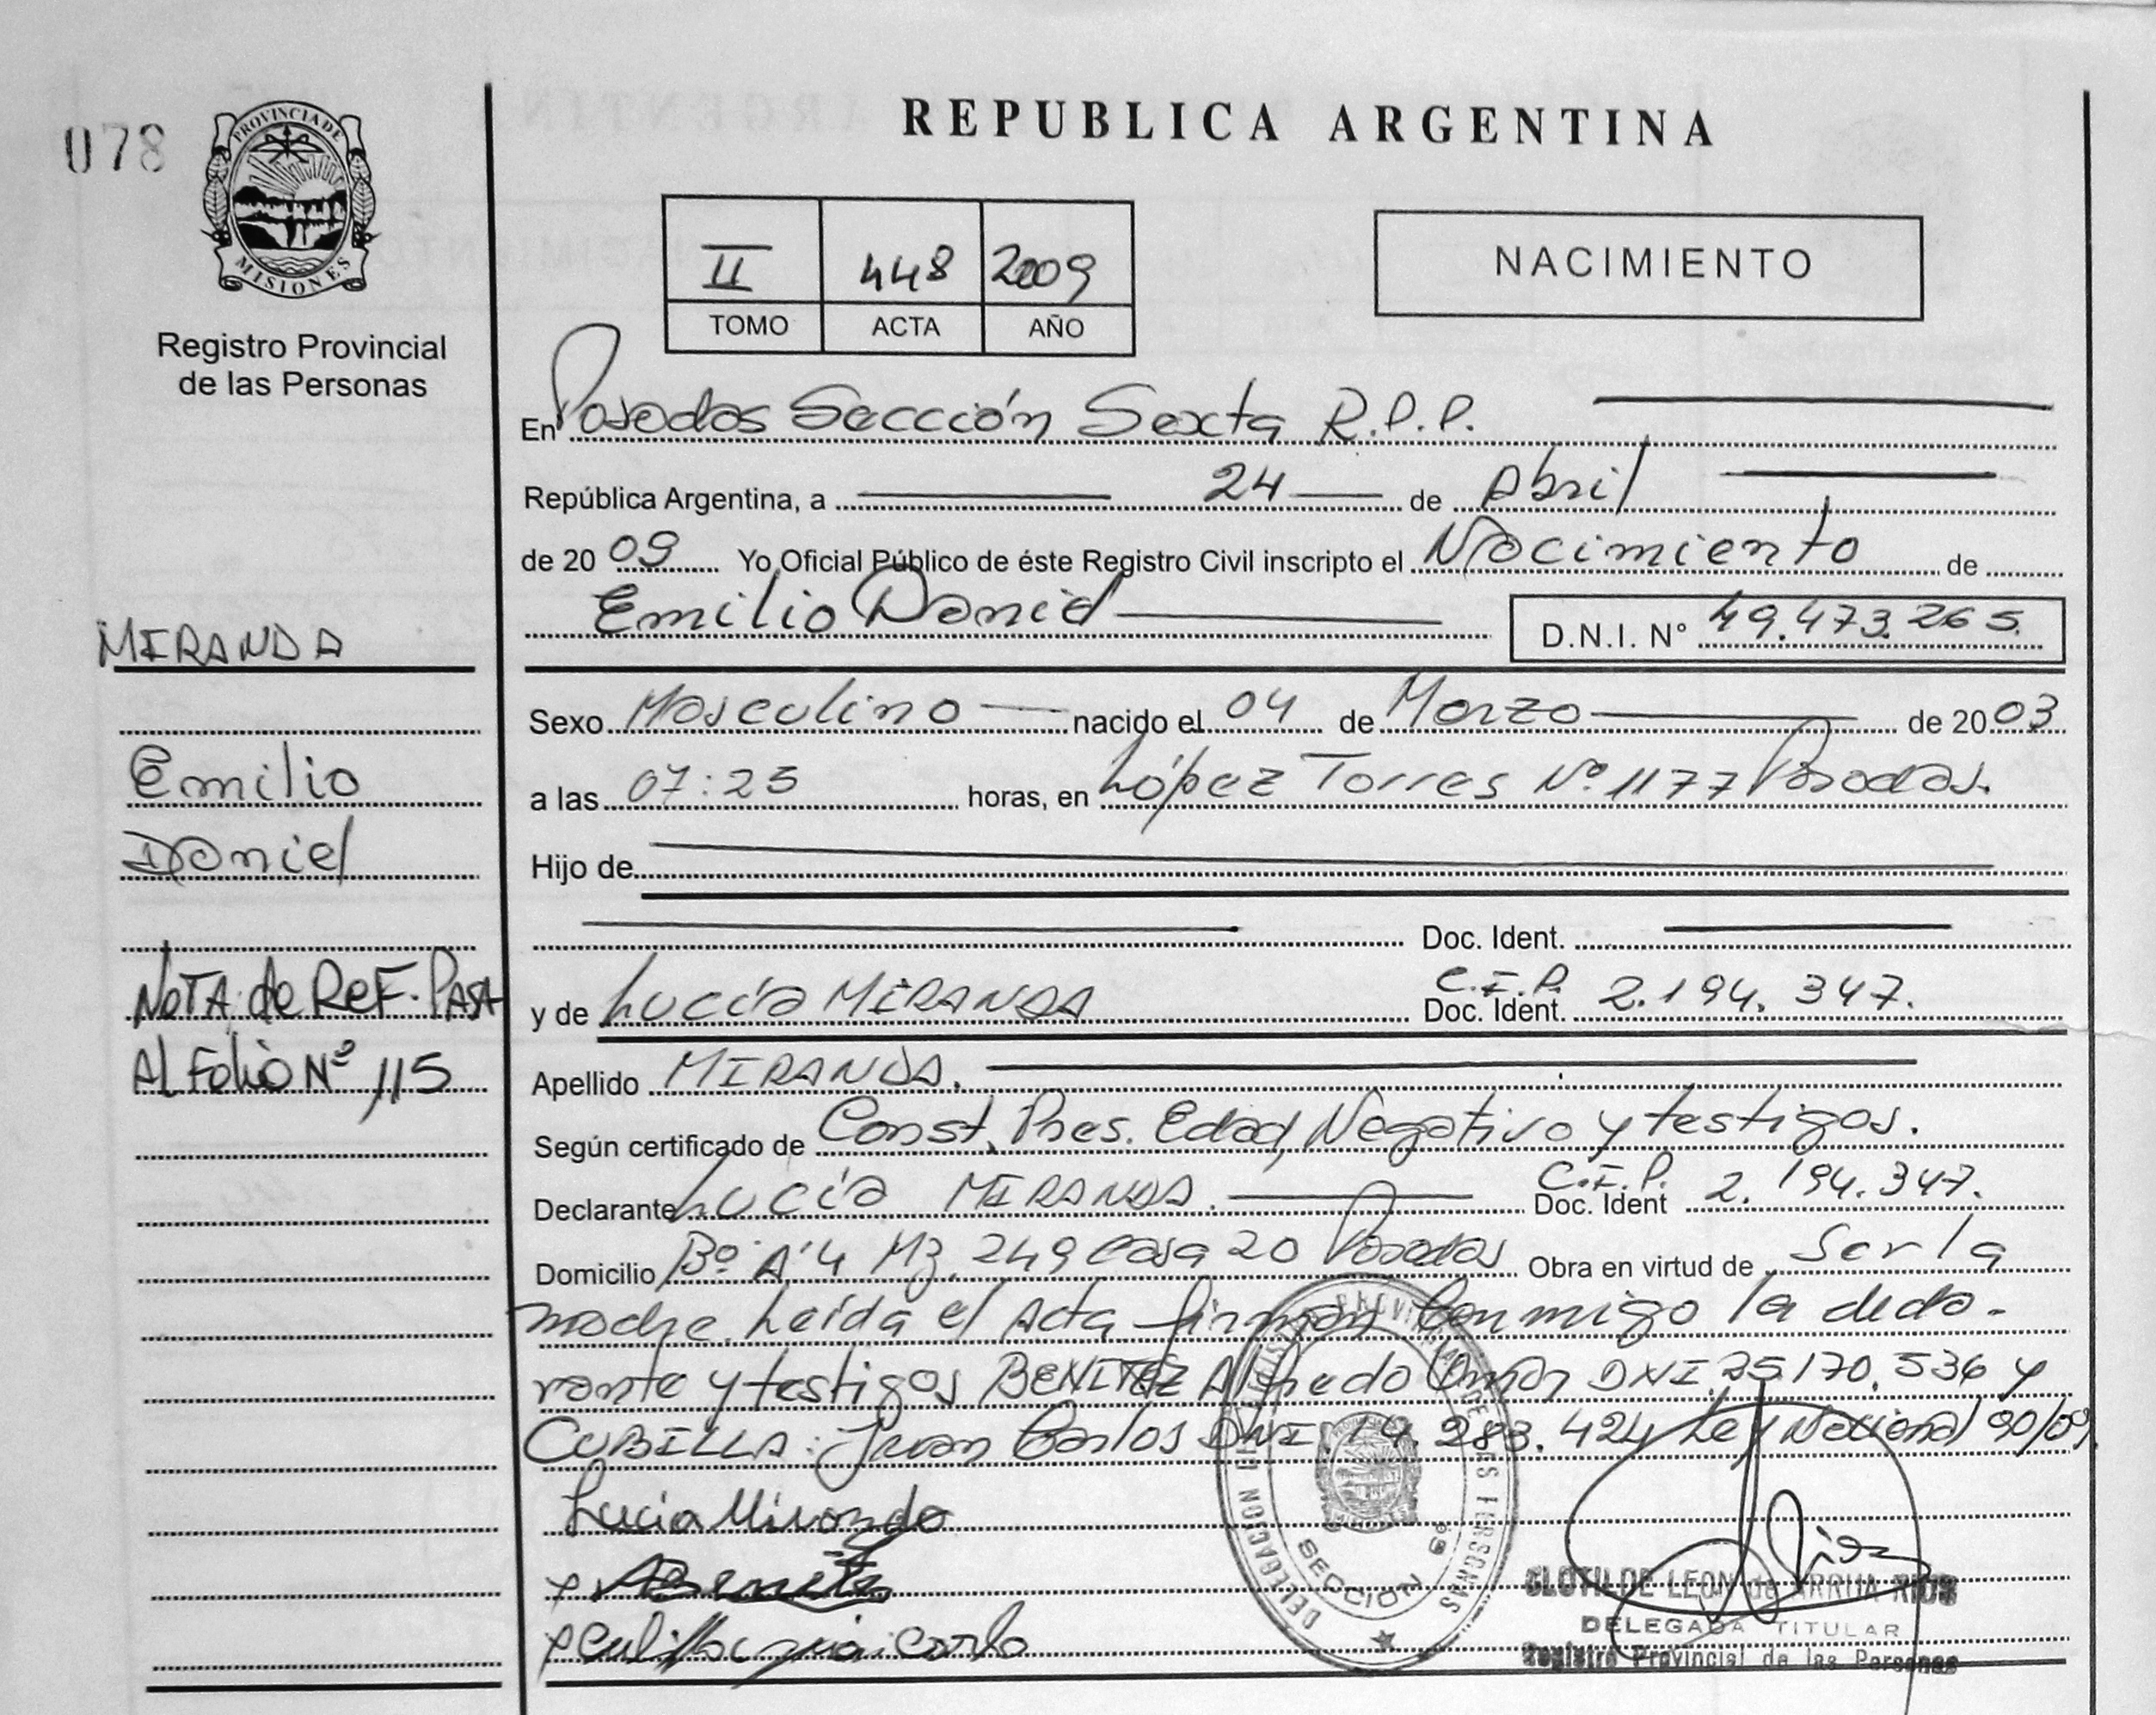 078
PROVINCIA DE
MISIONES
Registro Provincial
de las Personas
REPUBLICA ARGENTINA
II 448 2009
TOMO ACTA AÑO
NACIMIENTO
En Posadas Sección Sexta R.P.P.
República Argentina, a 24 de Abril
de 20 09 Yo Oficial Público de éste Registro Civil inscripto el Nacimiento de
Emilio Daniel D.N.I. N° 49.473.265.
MIRANDA
Sexo Masculino nacido el 04 de Marzo de 20 03
Emilio
a las 07:25 horas, en López Torres Nº 1177 Posadas.
Daniel
Hijo de
Doc. Ident.
NOTA de REF. PASA
y de Lucía MIRANDA C.I.P. Doc. Ident. 2.194.347.
AL Folio Nº 115
Apellido MIRANDA.
Según certificado de Const. Pres. Edad, Negativo y testigos.
Declarante Lucía MIRANDA. C.I.P. Doc. Ident 2.194.347.
Domicilio Bº A'4 Mz. 249 Casa 20 Posadas Obra en virtud de Ser la
madre. Leída el Acta firman conmigo la decla-
rante y testigos BENITEZ Alfredo Omar DNI. 25.170.536 y
CUBILLA: Juan Carlos DNI. 14.283.424 Ley Nacional 90/09.
Lucia Miranda
x ABenitez
x Cubilla Juan Carlo
SECCION
CLOTILDE LEON de ARRUA RIOS
DELEGADA TITULAR
Registro Provincial de las Personas